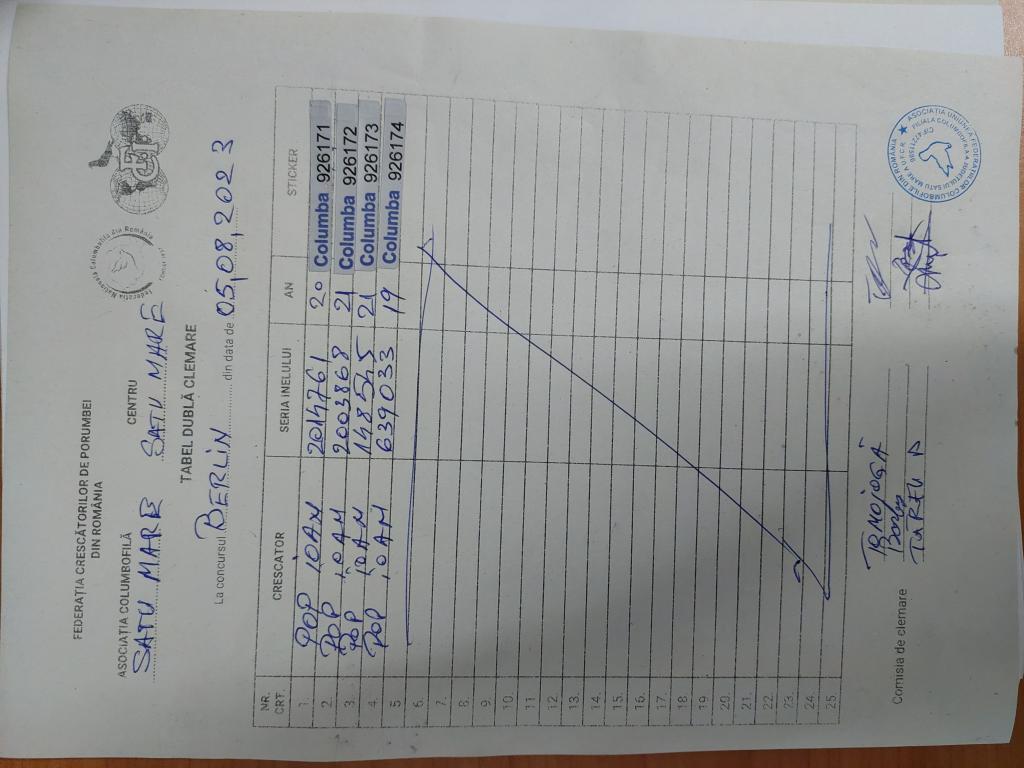 FEDERAȚIA CRESCĂTORILOR DE PORUMBEI
DIN ROMÂNIA
ASOCIAȚIA COLUMBOFILĂ CENTRU
SATU MARE SATU MARE
TABEL DUBLĂ CLEMARE
La concursul BERLIN din data de 05,08,2023
NR. CRT. CRESCATOR SERIA INELULUI AN STICKER
1. POP IOAN 2014761 20 Columba 926171
2. POP IOAN 2003868 21 Columba 926172
3. POP IOAN 148545 21 Columba 926173
4. POP IOAN 639033 19 Columba 926174
5
6.
7.
8.
9.
10.
11.
12.
13.
14.
15.
16.
17.
18.
19.
20.
21.
22.
23.
24.
25.
Comisia de clemare
TURCU D
Federația Națională Columbofilă din România
ASOCIAȚIA UNIUNEA FEDERAȚIILOR COLUMBOFILE DIN ROMÂNIA
FILIALA COLUMBOFILĂ A JUDEȚULUI SATU MARE A U.F.C.R.